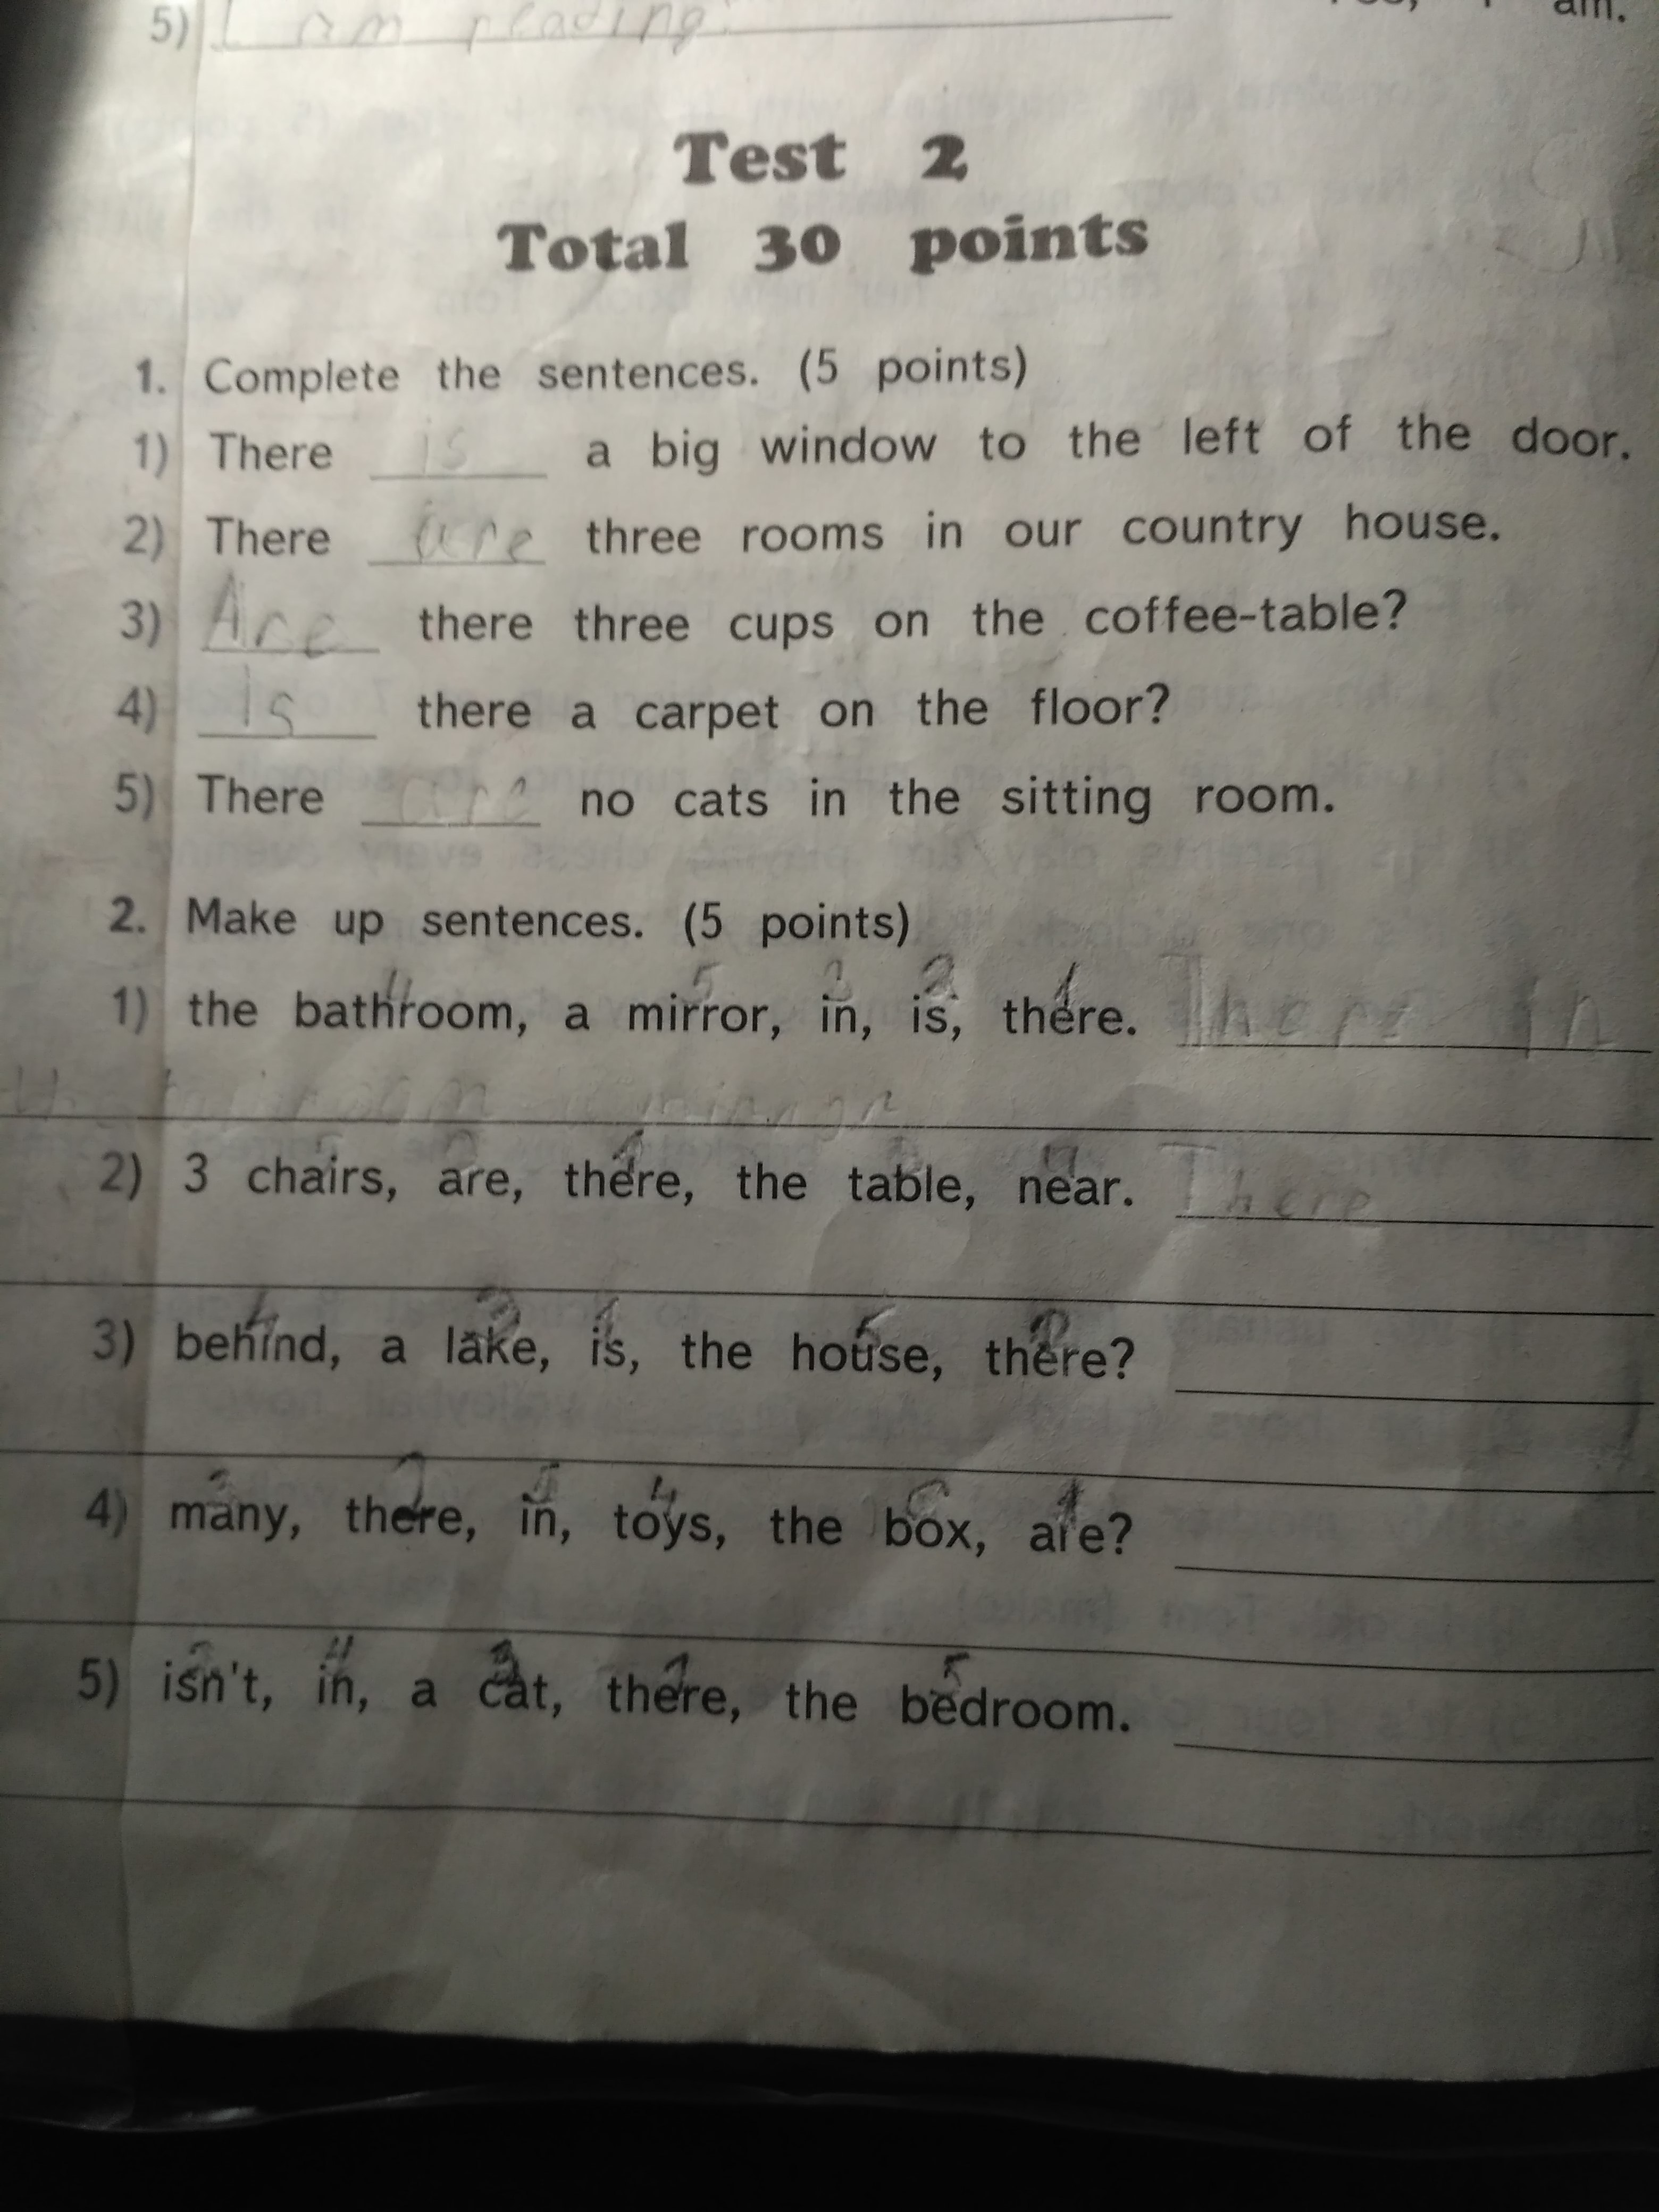 5) I am reading.
am.
Test 2
Total 30 points
1. Complete the sentences. (5 points)
1) There is a big window to the left of the door.
2) There are three rooms in our country house.
3) Are there three cups on the coffee-table?
4) Is there a carpet on the floor?
5) There are no cats in the sitting room.
2. Make up sentences. (5 points)
4 5 3 2 1
1) the bathroom, a mirror, in, is, there. There in
2) 3 chairs, are, there, the table, near. There
4 3 1 5 2
3) behind, a lake, is, the house, there?
3 2 5 4 6 1
4) many, there, in, toys, the box, are?
2 4 3 1 5
5) isn't, in, a cat, there, the bedroom.